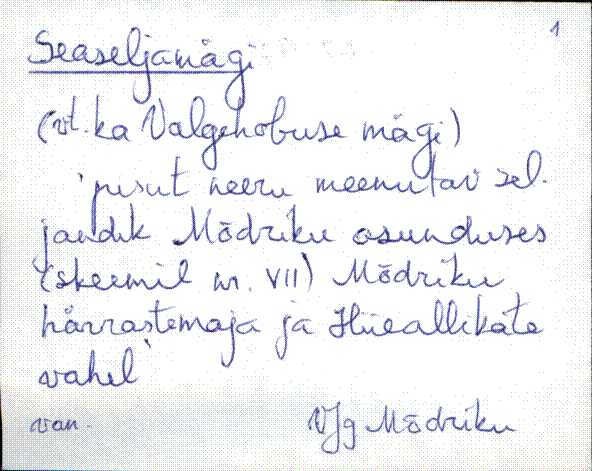 1
Seaseljamägi
(vt. ka Valgehobuse mägi)
'pisut neeru meenutav sel-
jandik Mõdriku asunduses
(skeemil nr. VII) Mõdriku
härrastemaja ja Hiieallikate
vahel'
van. VJg Mõdriku